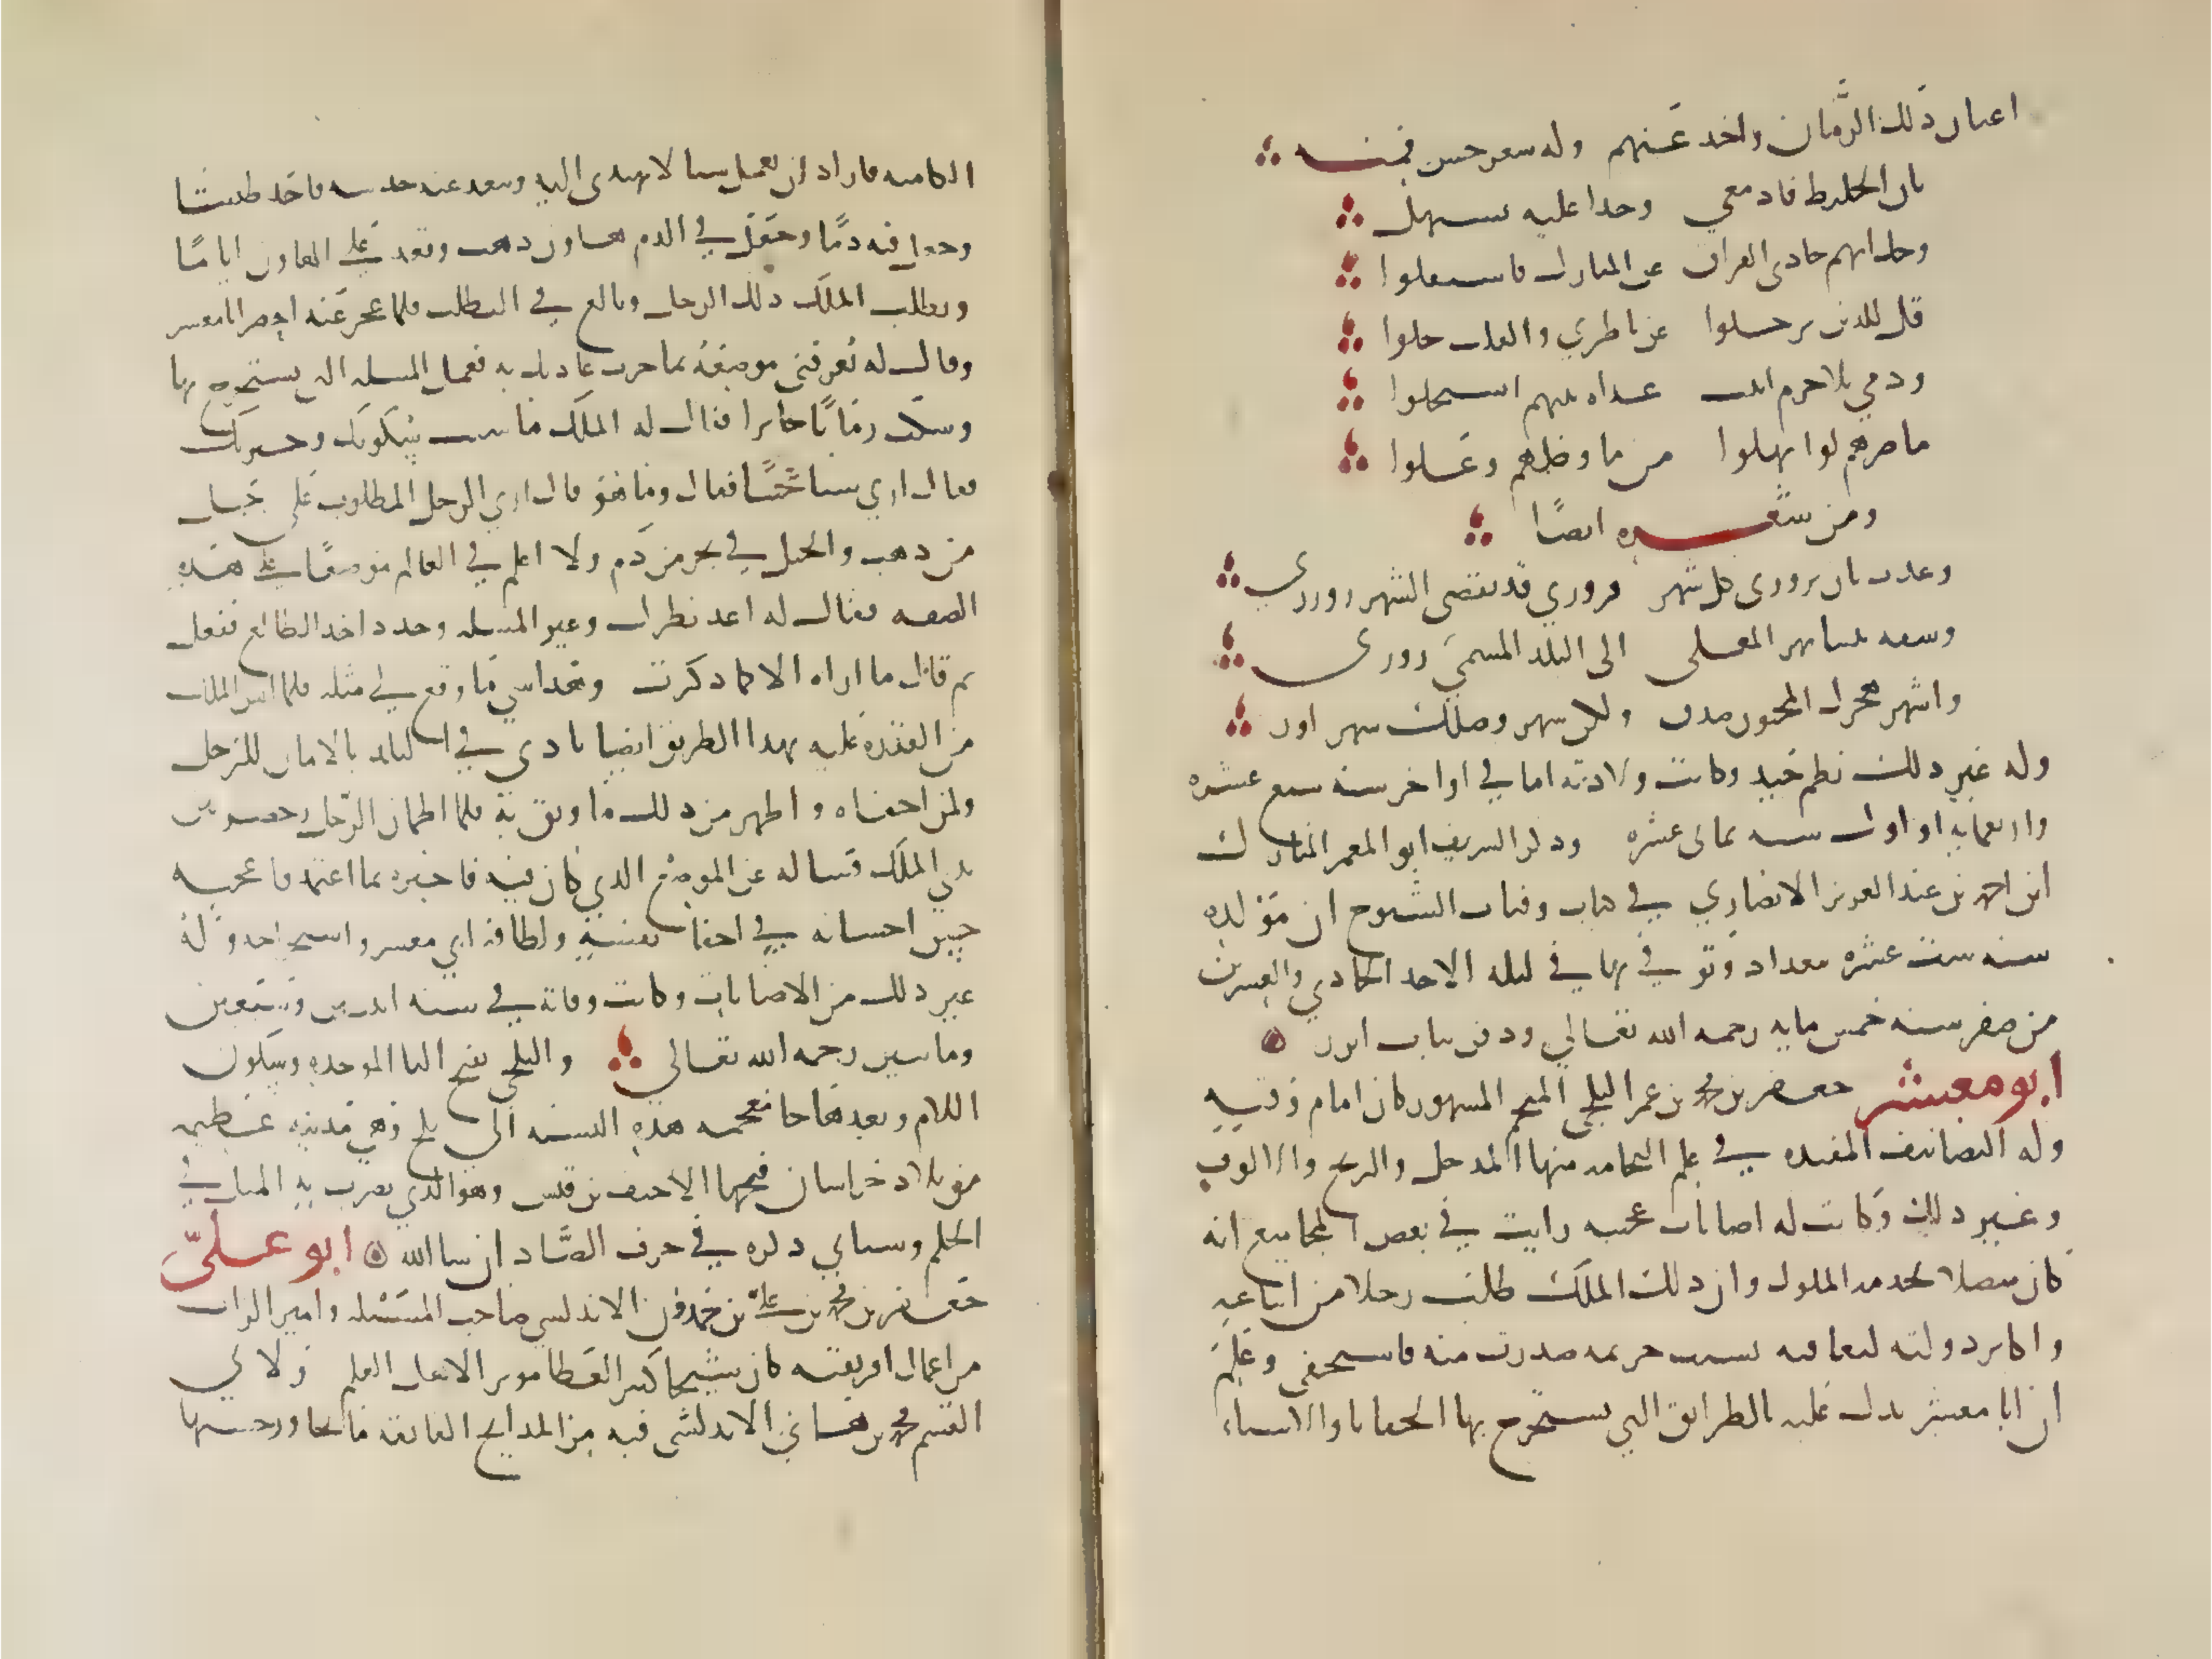 اعيان ذلك الزمان واخذ عنهم وله شعر حسن فمنه
بان الخليط فادمعي وجدا عليه تستهل
وحدا بهم حادي الفراق عن المنازل فاستقلوا
قل للذين ترحلوا عن ناظري والقلب حلوا
ودمي بلا جرم اتيت غداة بينهم استحلوا
ما ضرهم لو انهلوا من ما وصلهم وعلوا
ومن شعره ايضا
وعدت بان تزوري كل شهر فزوري قد تقضى الشهر زوري
وشقة بيننا نهر المعلى الى البلد المسمى زوري
واشهر هجرك المحتوم صدق ولكن شهر وصلك شهر زور
وله غير ذلك نظم جيد وكانت ولادته اما في اواخر سنة سبع عشره
واربعمايه او اول سنه ثماني عشره وذكر الشريف ابو المعمر المبارك
ابن احمد بن عبد العزيز الانصاري في كتاب وفيات الشيوخ ان مولده
سنه ست عشره ببغداد وتوفي بها في ليله الاحد الحادي والعشرين
من صفر سنه خمس مايه رحمه الله تعالى ودفن بباب ابرز
ابو معشر جعفر بن محمد بن عمر البلخي المنجم المشهور كان امام وقته
وله التصانيف المفيده في علم النجامه منها المدخل والزيج والالوف
وغير ذلك وكانت له اصابات عجيبه رايت في بعض المجاميع انه
كان متصلا بخدمه الملوك وان ذلك الملك طلب رجلا من اتباعه
واكابر دولته ليعاقبه بسبب جريمه صدرت منه فاستخفى وعلم
ان ابا معشر يدل عليه بالطرايق التي يستخرج بها الخفايا والاشياء
الكامنه فاراد ان يعمل شيا لا يهتدى اليه ويبعد عنه حدسه فاخذ طستا
وجعل فيه دما وجعل في الدم هاون ذهب وقعد على الهاون اياما
وتطلب الملك ذلك الرجل وبالغ في التطلب فلما عجز عنه احضر ابا معشر
وقال له تعرفني موضعه بما جرت عادتك به فعمل المسله التي يستخرج بها
وسكت زمانا حايرا فقال له الملك ما سبب سكوتك وحيرتك
فقال ارى شيا عجيبا فقال وما هو قال ارى الرجل المطلوب على جبل
من ذهب والجبل في بحر من دم ولا اعلم في العالم موضعا على هذه
الصفه فقال له اعد نظرك وغير المسله وجدد اخذ الطالع ففعل
ثم قال ما اراه الا كما ذكرت وهذا شي ما وقع لي مثله فلما ايس الملك
من القدره عليه بهذا الطريق ايضا نادى في البلد بالامان للرجل
ولمن اخفاه واظهر من ذلك ما وثق به فلما اطمان الرجل وحضر بين
يدي الملك فساله عن الموضع الذي كان فيه فاخبره بما اعتمد فاعجبه
حسن احسانه في اخفا نفسه ولطافة ابي معشر واستخراجه وله
غير ذلك من الاصابات وكانت وفاته في سنه اثنتين وسبعين
ومايتين رحمه الله تعالى والبلخي بفتح البا الموحده وسكون
اللام وبعدها خا معجمه هذه النسبه الى بلخ وهي مدينه عظيمه
من بلاد خراسان فتحها الاحنف بن قيس وهو الذي يضرب به المثل في
الحلم وسياتي ذكره في حرف الضاد ان شا الله ابو علي
جعفر بن محمد بن علي بن حمدون الاندلسي صاحب المسيله وامير الزاب
من اعمال افريقيه كان شيخا كثير العطا موثرا لاهل العلم ولابي
القسم محمد بن هاني الاندلسي فيه من المدايح الفايقه ما تجاوز حسنها